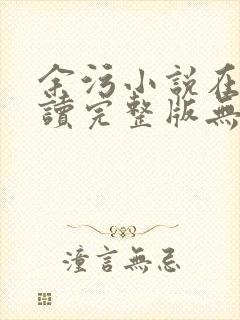 余污小說在
讀完整版無
潼言無忌